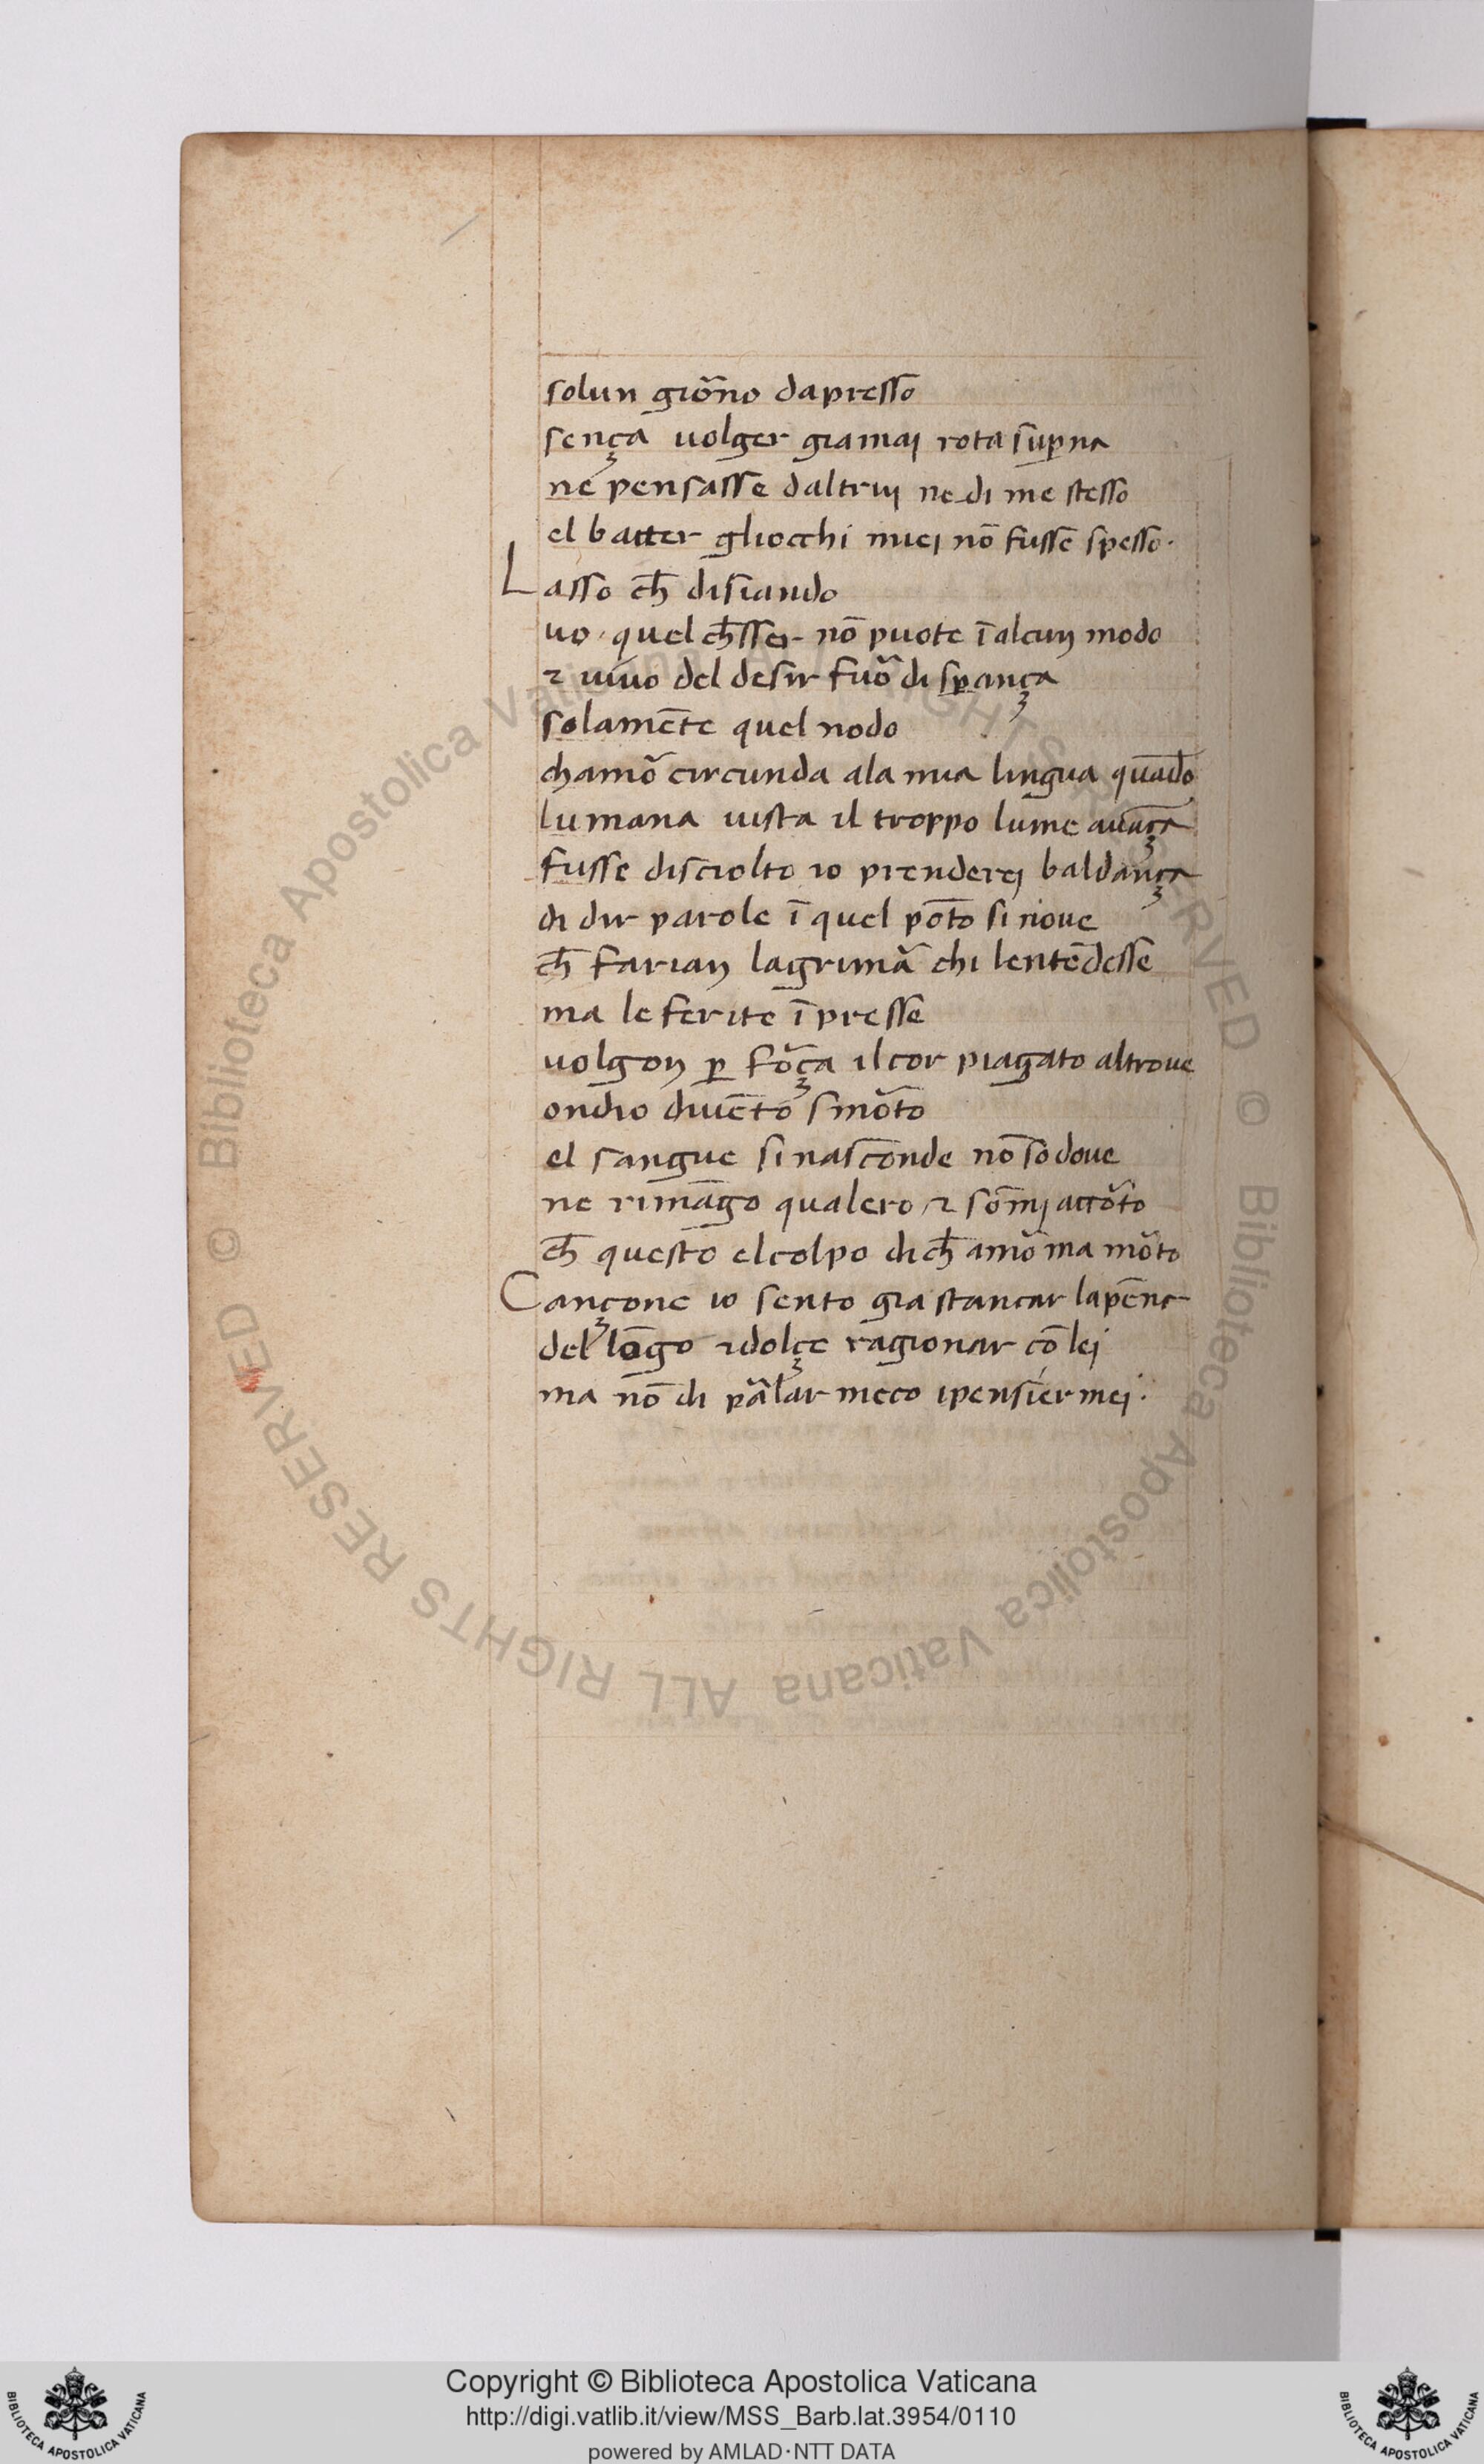 solun gior̃no dapresso
sença uolger giamaj rota sup̲na
ne pensasse daltruj ne di me stesso
el batter gliocchi miej nō fusse spesso·
Lasso ch̄ disiando
uo quel ch̄sser nō puote ī alcun modo
⁊ uiuo del desir fuõ di sp̲ança
solamēte quel nodo
chamõ circunda ala mia lingua quādo
lumana uista il troppo lume auāça
fusse disciolto io prenderej baldança
di dir parole ī quel pōto si noue
ch̄ farian lagrimã chi lentēdesse
ma le ferite īpresse
uolgon p̲ fõça il cor piagato altroue
ondio diuēto smõto
el sangue si nasconde nō so doue
ne rimāgo qualero ⁊ sōmj accõto
ch̄ questo el colpo di ch̄ amõ ma mõto
Cançone io sento gia stancar la pēna
del lōgo ⁊ dolçe ragionar cō lej
ma nō di pãlar meco i pensier mej·
Copyright © Biblioteca Apostolica Vaticana
http://digi.vatlib.it/view/MSS_Barb.lat.3954/0110
powered by AMLAD·NTT DATA
BIBLIOTECA APOSTOLICA VATICANA
BIBLIOTECA APOSTOLICA VATICANA
© Biblioteca Apostolica Vaticana ALL RIGHTS RESERVED © Biblioteca Apostolica Vaticana ALL RIGHTS RESERVED